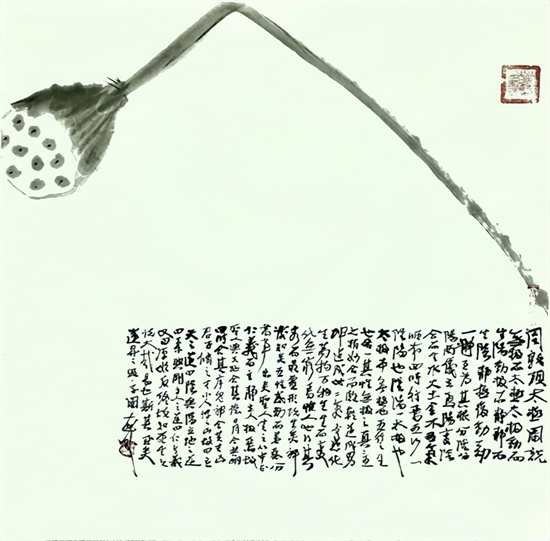 周敦頤太極圖説
無極而太極太極動而
生陽動極而静静而
生陰静極復動一動
一静互為其根分陰分
陽兩儀立焉陽變陰
合而生水火木金土五氣
順布四時行焉五行一
陰陽也陰陽一太極也
太極本無極也五行之生
也各一其性無極之真二五
之精妙合而凝乾道成男
坤道成女二氣交感化
生萬物萬物生生而變
化無窮焉惟人也得其
秀而最靈形既生矣神
發知矣五性感動而善惡分
萬事出矣聖人定之以中正
仁義而主静立人極焉故
聖人與天地合其德日月合其明
四時合其序鬼神合其吉凶
君子修之吉小人悖之凶故曰立
天之道曰陰與陽立地之道
曰柔與剛立人之道曰仁與義
又曰原始反終故知死生之
説大哉易也斯其至矣